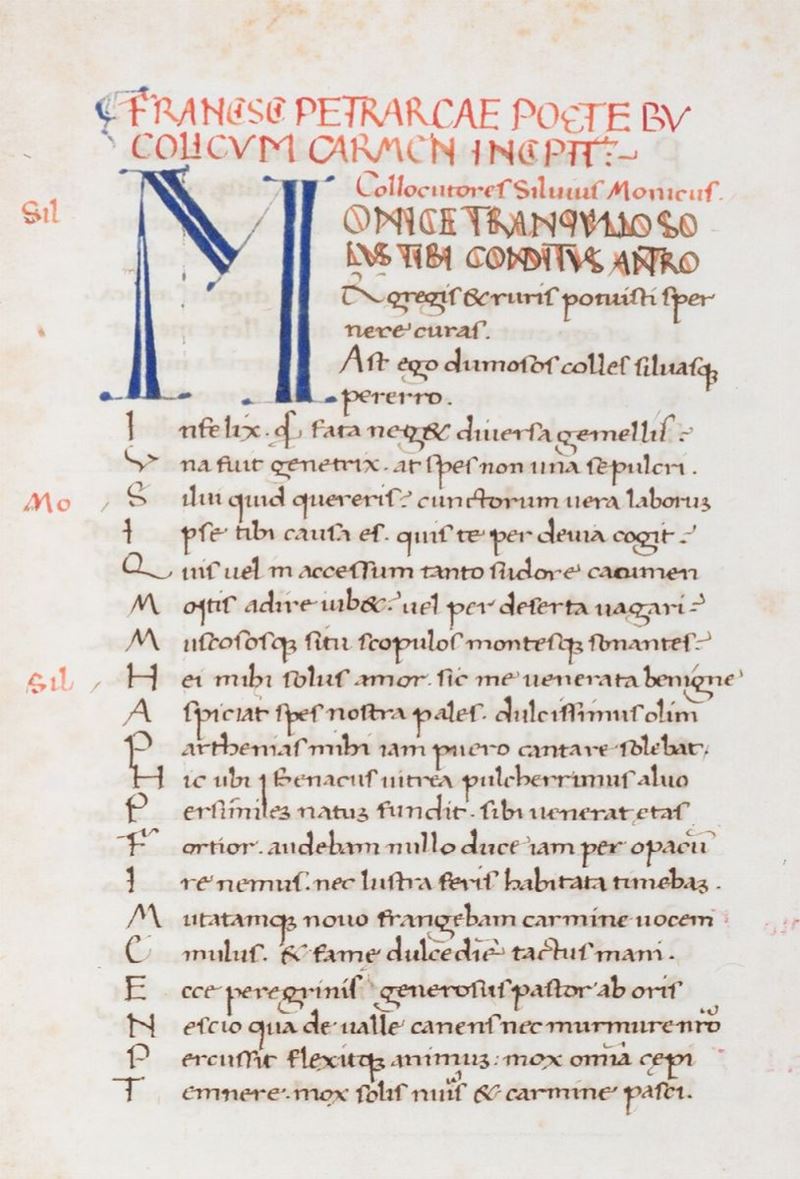 FRANCISCI PETRARCAE POETE BV
COLICVM CARMEN INCIPIT:~
Collocutores Siluius Monicus.
Sil
MONICE TRANQVILLO SO
LVS TIBI CONDITVS ANTRO
Et gregis & ruris potuisti sper
nere curas.
Ast ego dumosos colles siluasq;
pererro.
Infelix. q̃ fata neg& diuersa gemellis?
Vna fuit genetrix. at spes non una sepulcri.
Mo
Silui quid quereris? cunctorum uera laborum
Ipse tibi causa es. quis te per deuia cogit?
Quis uel in accessum tanto sudore cacumen
Montis adire iub&? uel per deserta uagari?
Muscososq; situ scopulos montesq; sonantes?
Sil
Hei mihi solus amor. sic me uenerata benigne
Aspiciat spes nostra pales. dulcissimus olim
Parthenias mihi iam puero cantare solebat.
Hic ubi Benacus uitrea pulcherrimus aluo
Persimilez natuz fundit. sibi uenerat etas
Fortior. audebam nullo duce iam per opacũ
Ire nemus. nec lustra feris habitata timebaz.
Mutatamq; nouo frangebam carmine uocem
Emulus. & fame dulcediẽ tactus inani.
Ecce peregrinis generosus pastor ab oris
Nescio qua de ualle canens nec murmure nr̃o
Percussit flexitq; animuz: mox omĩa cępi
Temnere. mox solis nuĩs & carmine pasci.